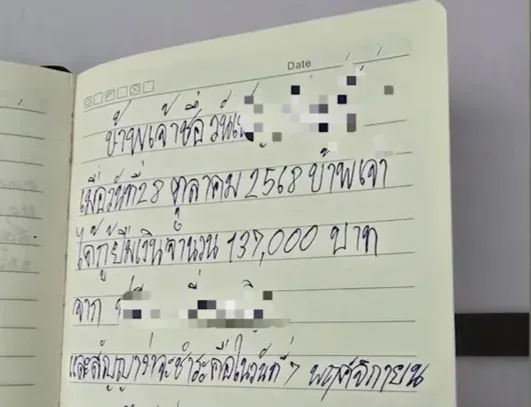 Date
ข้าพเจ้าชื่อ วันเ
เมื่อวันที่ 28 ตุลาคม 2568 ข้าพเจ้า
ได้กู้ยืมเงินจำนวน 137,000 บาท
จาก
และสัญญาว่าจะชำระคืนในวันที่ 7 พฤศจิกายน